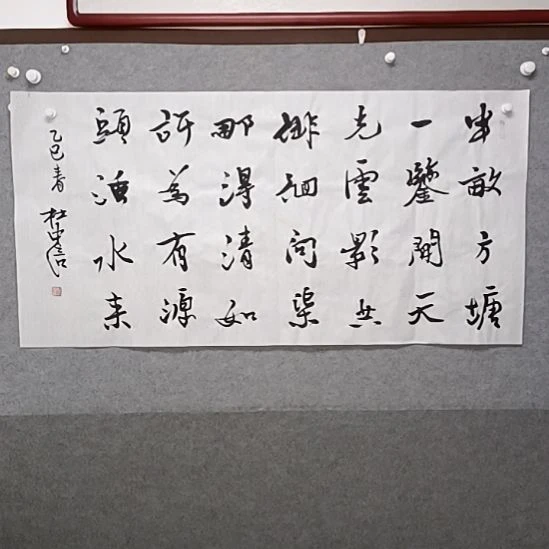 半畝方塘
一鑒開天
光雲影共
徘徊问渠
那得清如
許為有源
頭活水来
乙巳春 杜忠信